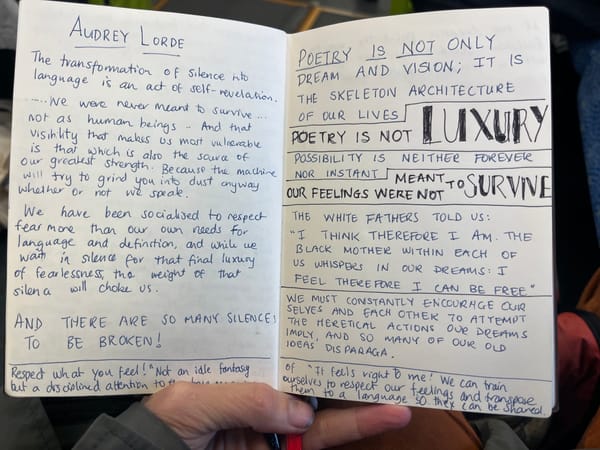 AUDREY LORDE
The transformation of silence into
language is an act of self-revelation.
.... We were never meant to survive ...
not as human beings .. And that
visibility that makes us most vulnerable
is that which is also the source of
our greatest strength. Because the machine
will try to grind you into dust anyway
whether or not we speak.
We have been socialised to respect
fear more than our own needs for
language and definition, and while we
wait in silence for that final luxury
of fearlessness, the weight of that
silence will choke us.
AND THERE ARE SO MANY SILENCES
TO BE BROKEN!
Respect what you feel!" Not an idle fantasy
but a disciplined attention to the
POETRY IS NOT ONLY
DREAM AND VISION; IT IS
THE SKELETON ARCHITECTURE
OF OUR LIVES
POETRY IS NOT LUXURY
POSSIBILITY IS NEITHER FOREVER
NOR INSTANT
OUR FEELINGS WERE NOT MEANT TO SURVIVE
THE WHITE FATHERS TOLD US:
"I THINK THEREFORE I AM. THE
BLACK MOTHER WITHIN EACH OF
US WHISPERS IN OUR DREAMS: I
FEEL THEREFORE I CAN BE FREE"
WE MUST CONSTANTLY ENCOURAGE OUR
SELVES AND EACH OTHER TO ATTEMPT
THE HERETICAL ACTIONS OUR DREAMS
IMPLY, AND SO MANY OF OUR OLD
IDEAS DISPARAGA.
of "It feels right to me! We can train
ourselves to respect our feelings and transpose
them to a language so they can be shared.